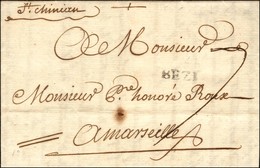 St. chinian
A Monsieur
BEZI
Monsieur Pre honoré Roux
A marseille